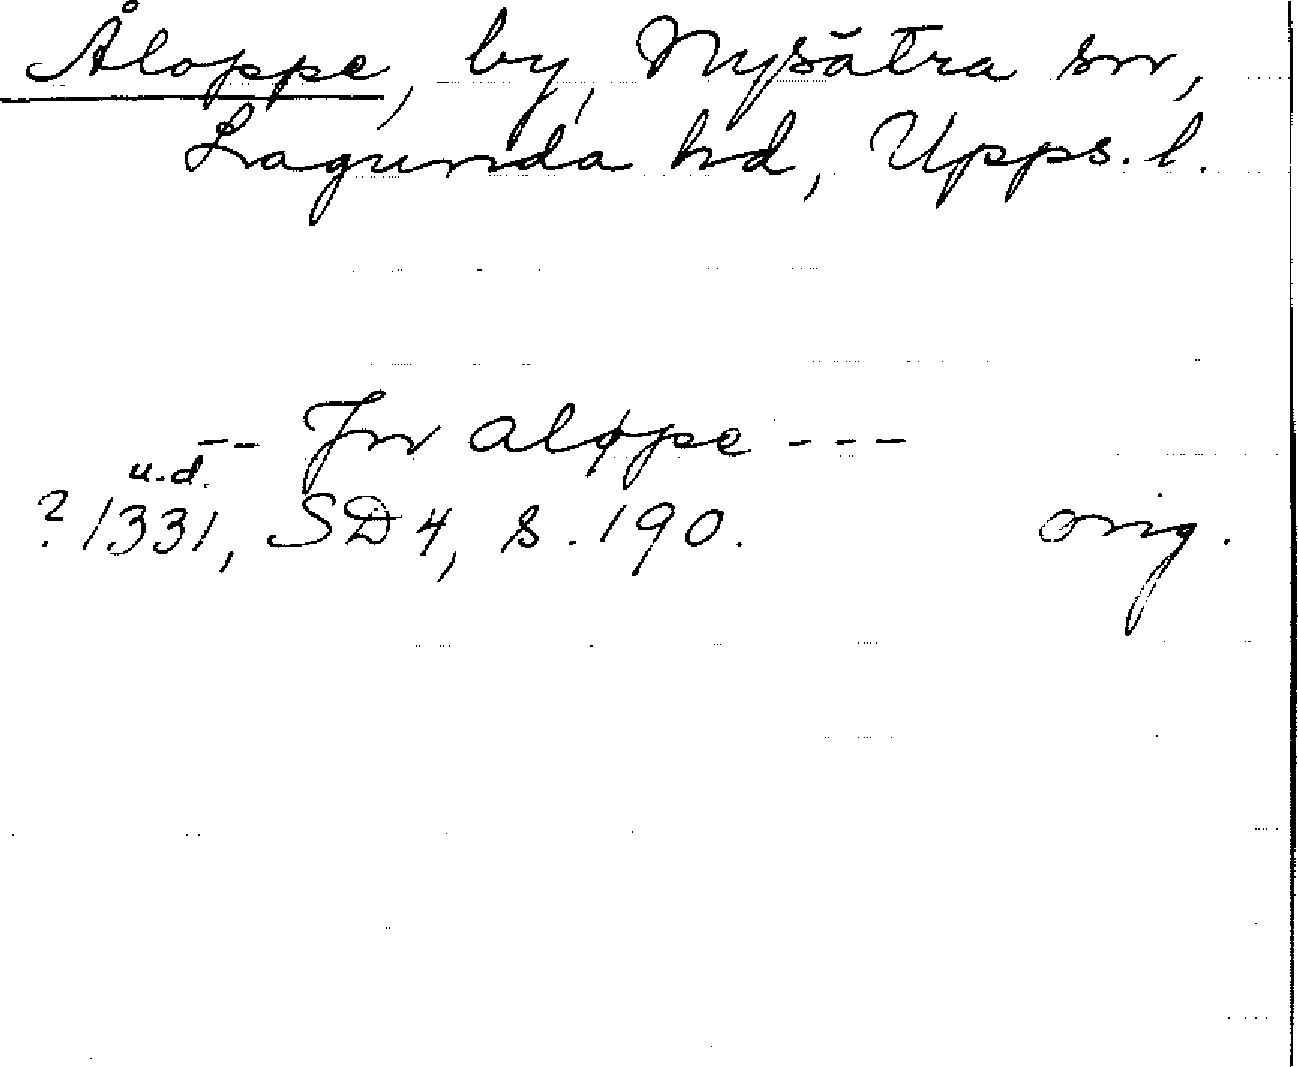 Åloppe, by, Nysätra sn,
Lagunda hd, Upps. l.
-- Jn aløpe ---
u.d.
? 1331, SD 4, s. 190. orig.